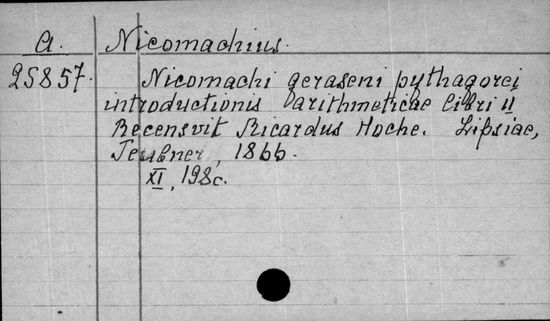 A. Nicomachius.
25857. Nicomachi geraseni pythagorei
introductionis arithmeticae libri II
Recensvit Ricardus Hoche. Lipsiae,
Teubner, 1866.
XI, 198c.